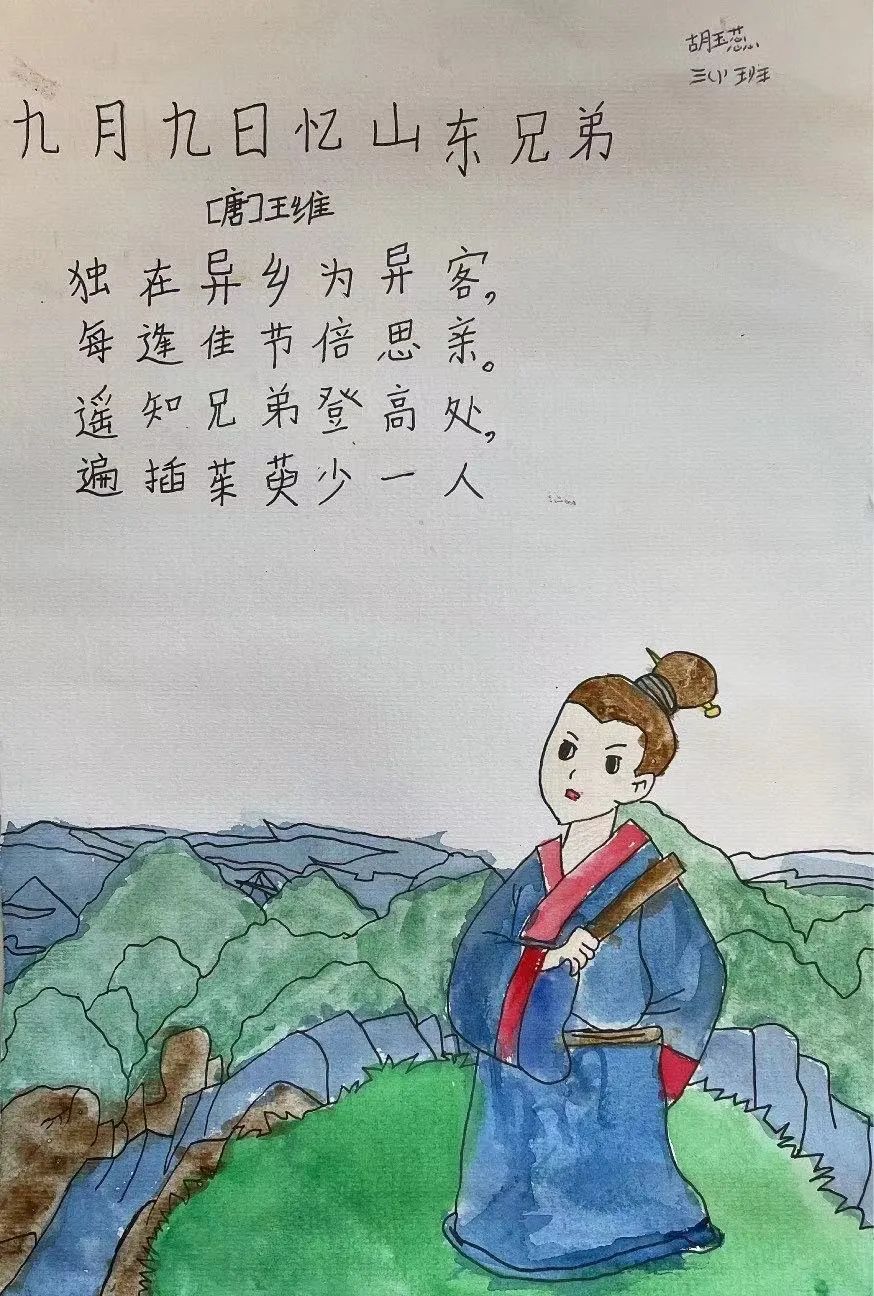 胡玉蕊
三(1)班
九月九日忆山东兄弟
[唐]王维
独在异乡为异客,
每逢佳节倍思亲。
遥知兄弟登高处,
遍插茱萸少一人